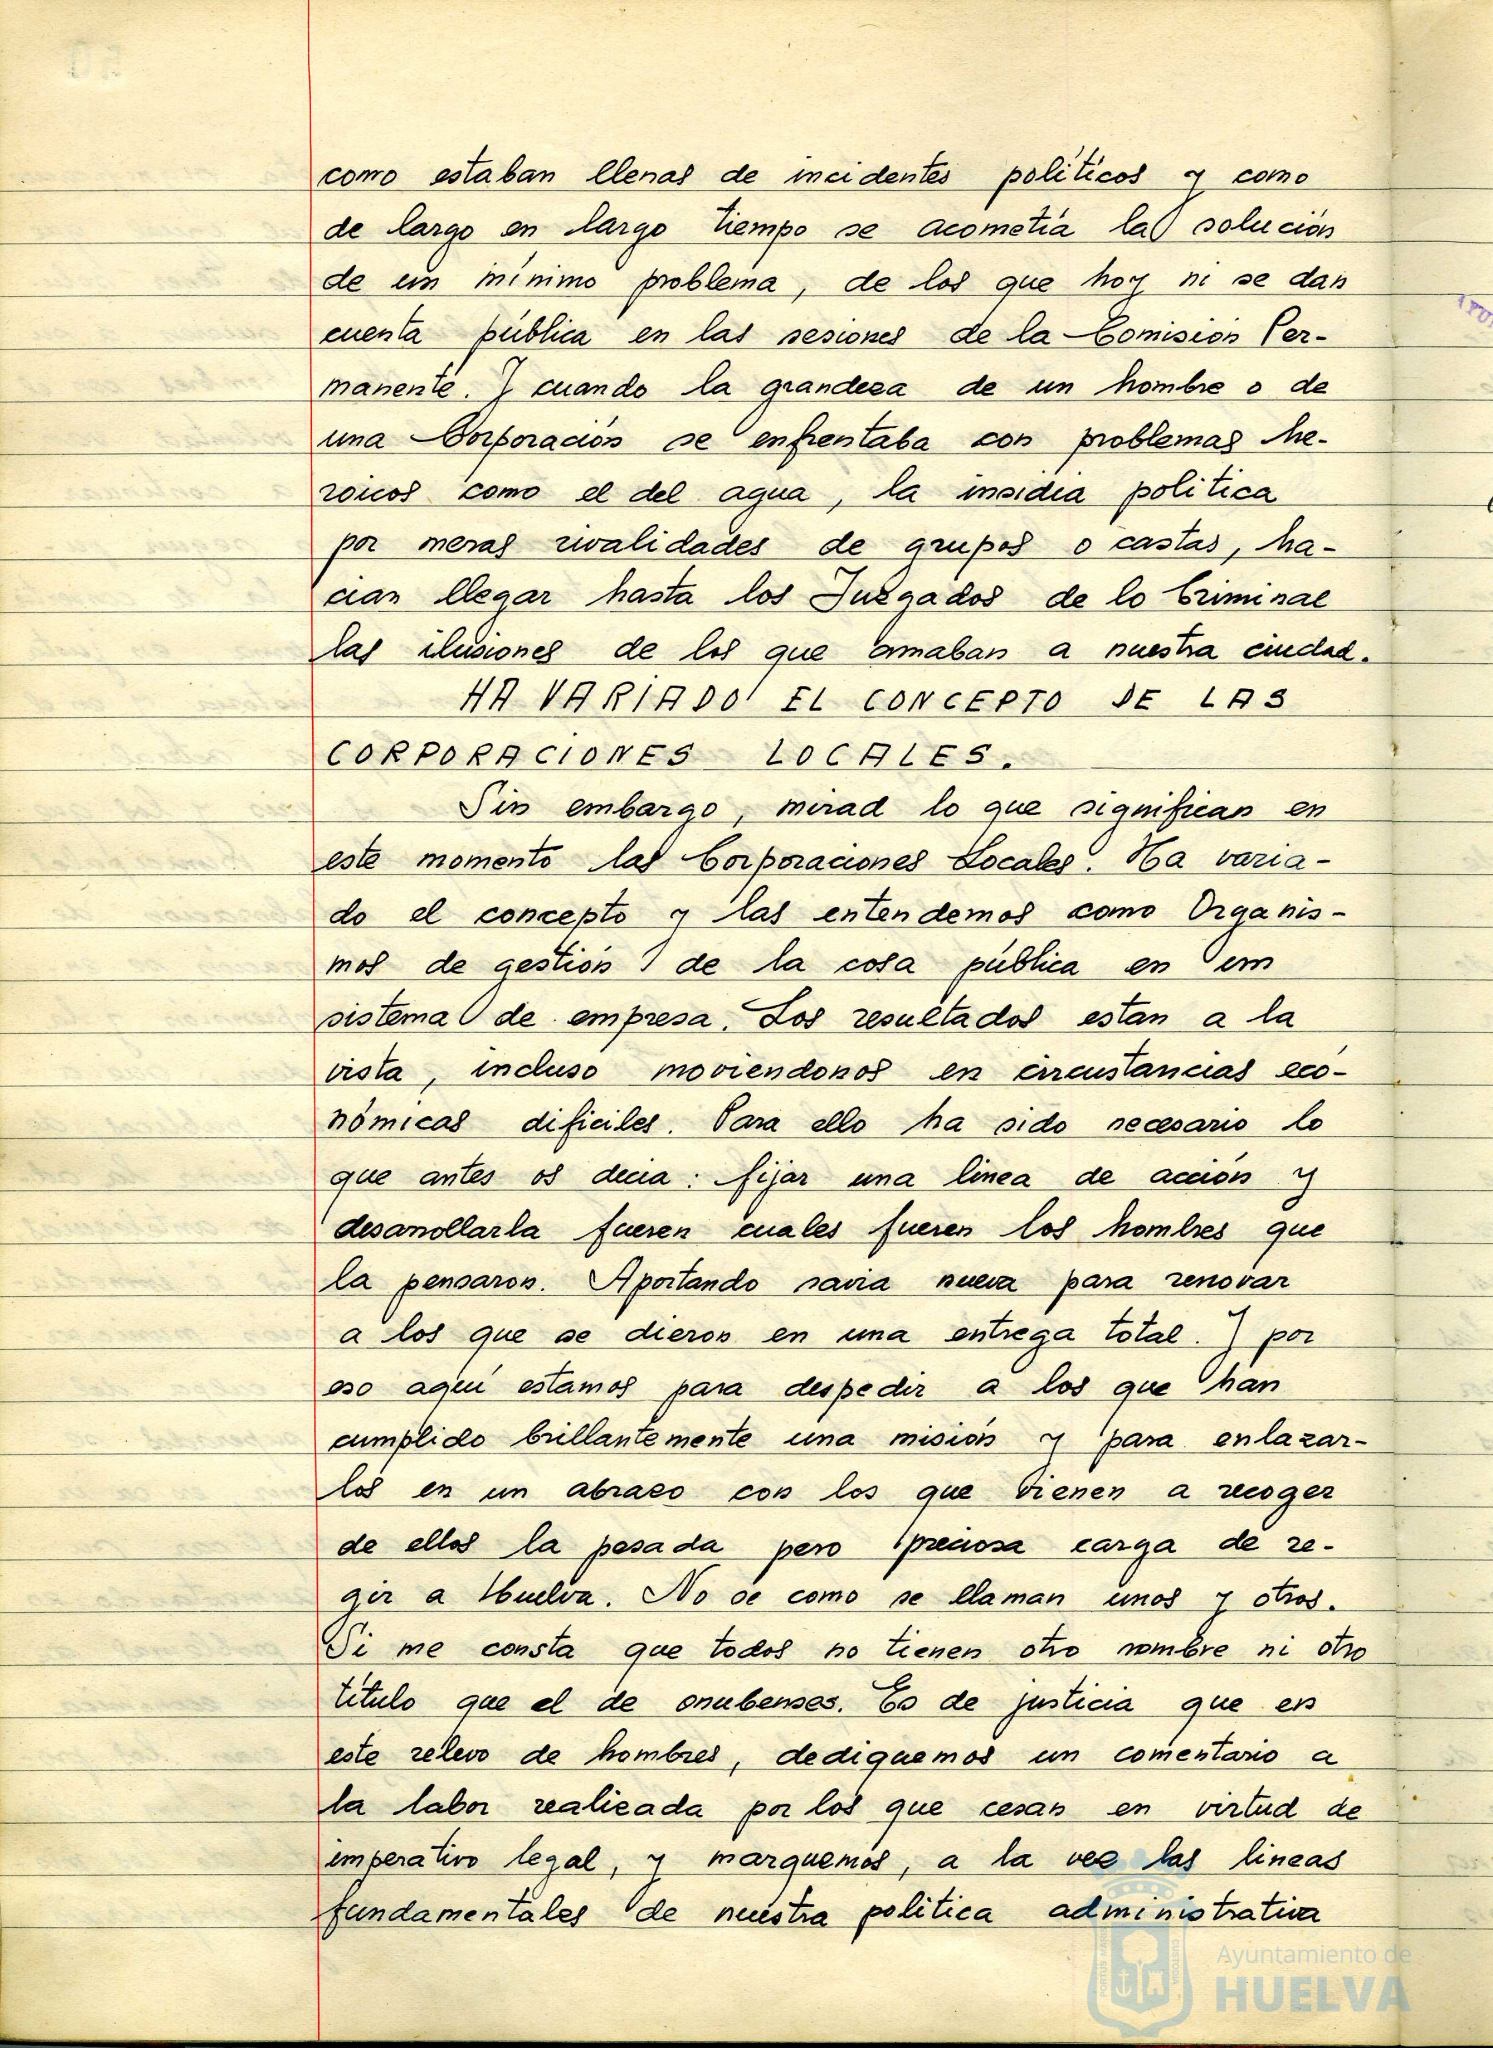 como estaban llenas de incidentes políticos y como
de largo en largo tiempo se acometía la solución
de un mínimo problema, de los que hoy ni se dan
cuenta pública en las sesiones de la Comisión Per-
manente. Y cuando la grandeza de un hombre o de
una Corporación se enfrentaba con problemas he-
roicos como el del agua, la insidia politica
por meras rivalidades de grupos o castas, ha-
cian llegar hasta los Juzgados de lo Criminal
las ilusiones de los que amaban a nuestra ciudad.
HA VARIADO EL CONCEPTO DE LAS
CORPORACIONES LOCALES.
Sin embargo, mirad lo que significan en
este momento las Corporaciones Locales. Ha varia-
do el concepto y las entendemos como Organis-
mos de gestión de la cosa pública en un
sistema de empresa. Los resultados estan a la
vista, incluso moviendonos en circustancias eco-
nómicas dificiles. Para ello ha sido necesario lo
que antes os decia: fijar una linea de acción y
desarrollarla fueren cuales fueren los hombres que
la pensaron. Aportando savia nueva para renovar
a los que se dieron en una entrega total. Y por
eso aquí estamos para despedir a los que han
cumplido brillantemente una misión y para enlazar-
los en un abrazo con los que vienen a recoger
de ellos la pesada pero preciosa carga de re-
gir a Huelva. No se como se llaman unos y otros.
Si me consta que todos no tienen otro nombre ni otro
título que el de onubenses. Es de justicia que en
este relevo de hombres, dediquemos un comentario a
la labor realizada por los que cesan en virtud de
imperativo legal, y marquemos, a la vez las lineas
fundamentales de nuestra politica administrativa
Ayuntamiento de
HUELVA